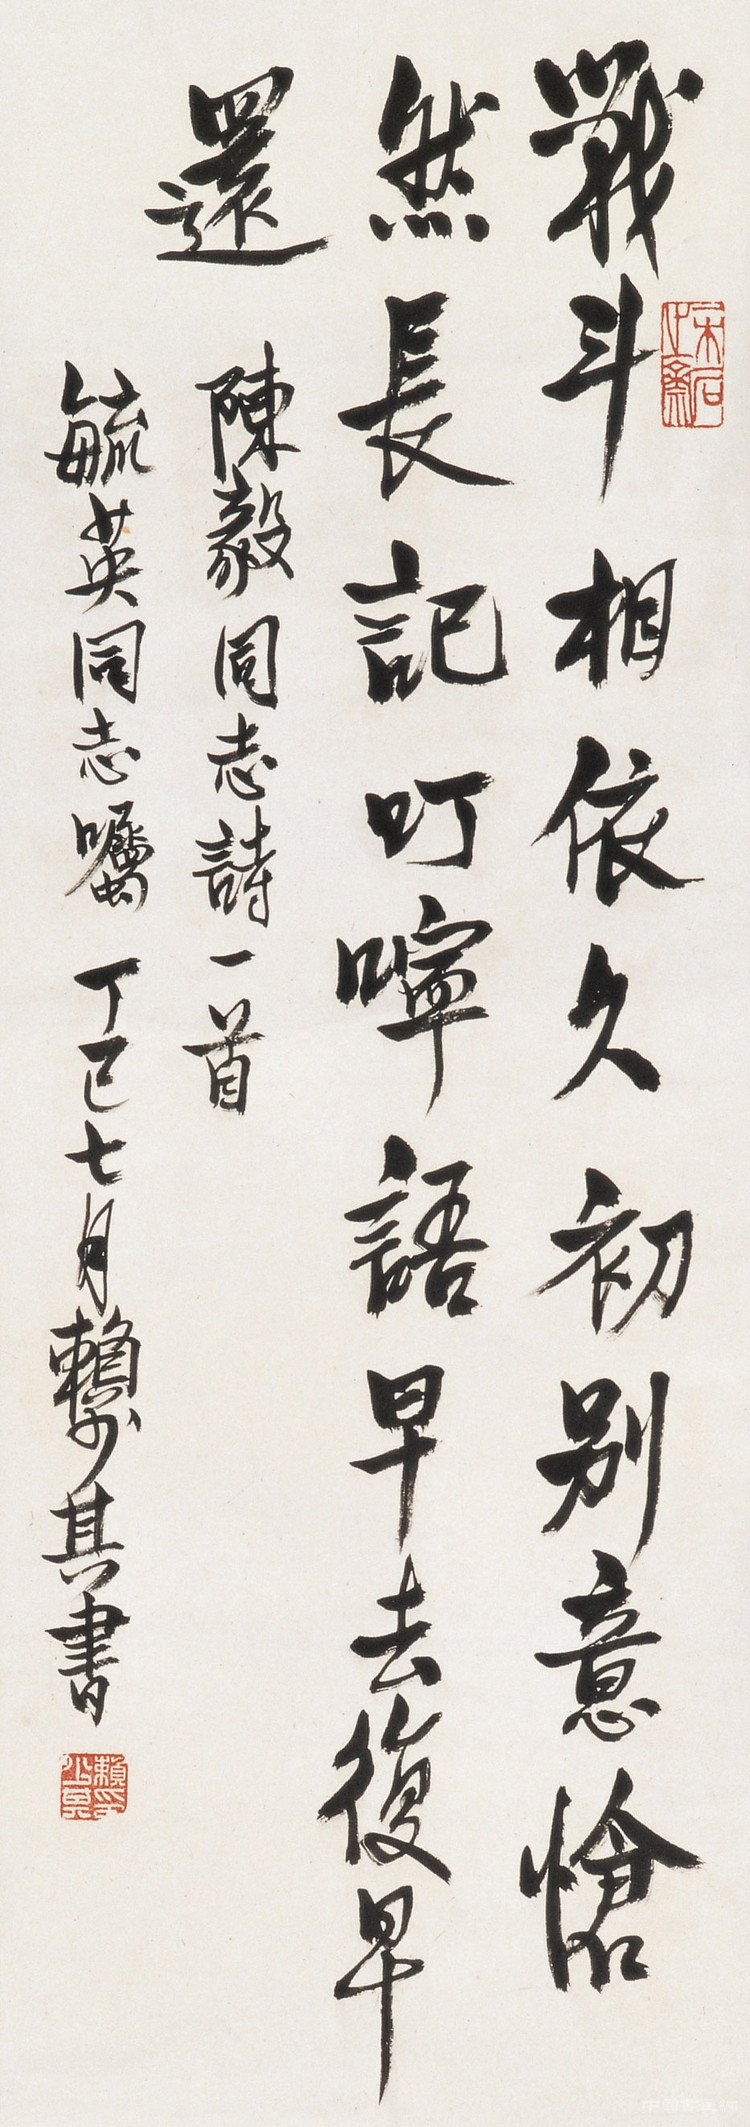 戰斗相依久初别意愴
然長記叮嚀語早去復早
還
陳毅同志詩一首
毓英同志囑丁巳七月賴少其書